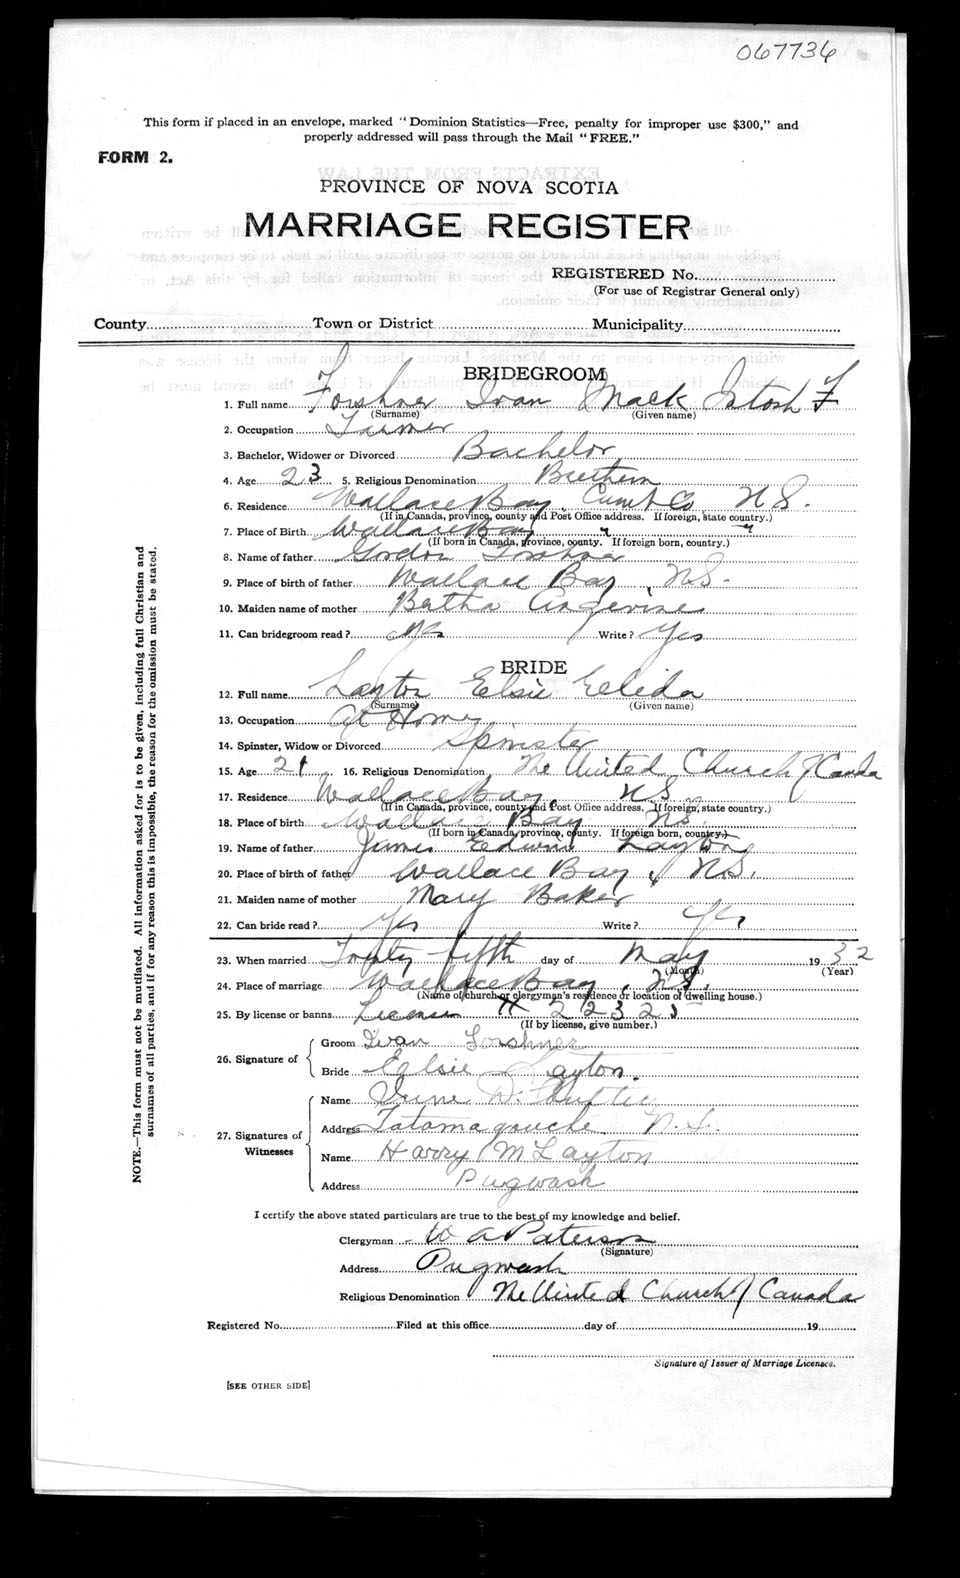 067736
This form if placed in an envelope, marked "Dominion Statistics—Free, penalty for improper use $300," and
properly addressed will pass through the Mail "FREE."
FORM 2.
PROVINCE OF NOVA SCOTIA
MARRIAGE REGISTER
REGISTERED No.
(For use of Registrar General only)
County Town or District Municipality
BRIDEGROOM
1. Full name Forshner Ivan Mack Intosh F
(Surname) (Given name)
2. Occupation Farmer
3. Bachelor, Widower or Divorced Bachelor
4. Age 23 5. Religious Denomination
6. Residence Wallace Bay, Cum'l Co N.S.
(If in Canada, province, county and Post Office address. If foreign, state country.)
7. Place of Birth Wallace Bay " "
(If born in Canada, province, county. If foreign born, country.)
8. Name of father Gordon Forshner
9. Place of birth of father Wallace Bay, N.S.
10. Maiden name of mother Bertha Angevine
11. Can bridegroom read? Yes Write? Yes
BRIDE
12. Full name Layton Elsie Elida
(Surname) (Given name)
13. Occupation At Home
14. Spinster, Widow or Divorced Spinster
15. Age 21 16. Religious Denomination The United Church of Canada
17. Residence Wallace Bay, N S
(If in Canada, province, county and Post Office address. If foreign, state country.)
18. Place of birth Wallace Bay N.S.
(If born in Canada, province, county. If foreign born, country.)
19. Name of father James Edwin Layton
20. Place of birth of father Wallace Bay, N.S.
21. Maiden name of mother Mary Baker
22. Can bride read? Yes Write? Yes
23. When married Twenty fifth day of May 1932
(Month) (Year)
24. Place of marriage Wallace Bay, N.S.
(Name of church or clergyman's residence or location of dwelling house.)
25. By license or banns License # 22325
(If by license, give number.)
26. Signature of
Groom Ivan Forshner
Bride Elsie Layton.
27. Signatures of Witnesses
Name Irene D.
Address Tatamagouche N.S.
Name Harry M Layton
Address Pugwash
I certify the above stated particulars are true to the best of my knowledge and belief.
Clergyman W A Paterson
(Signature)
Address Pugwash
Religious Denomination The United Church of Canada
Registered No. Filed at this office day of 19
Signature of Issuer of Marriage Licenses.
[SEE OTHER SIDE]
NOTE.—This form must not be mutilated. All information asked for is to be given, including full Christian and
surnames of all parties, and if for any reason this is impossible, the reason for the omission must be stated.